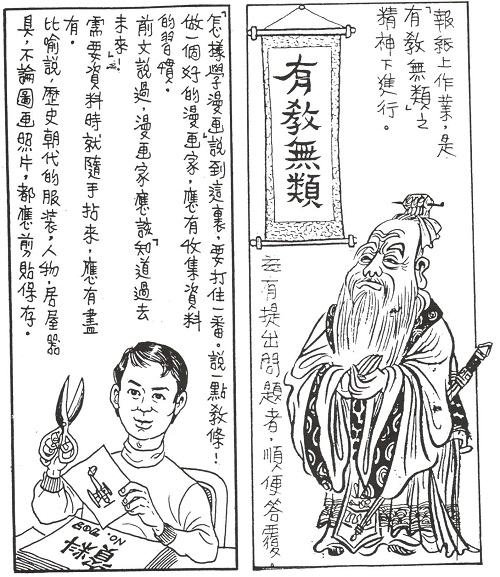 報紙上作業，是
「有教無類」之
精神下進行。
有教無類
茲有提出問題者，順便答覆。
「怎樣學漫画」說到這裏，要打住一番。說一點教條！
做個好的漫画家，應有收集資料
的習慣。
前文說過，漫画家應該「知道過去
未來」！
需要資料時就隨手拈來，應有盡
有。
比喻說，歷史朝代的服裝，人物，居屋器
具，不論圖画照片，都應剪貼保存。
資料
NO.